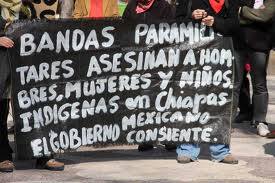 BANDAS PARAMILI
TARES ASESINAN A HOM
BRES, MUJERES Y NIÑOS
INDÍGENAS en Chiapas
EL GOBIERNO MEXICANO
CONSIENTE.